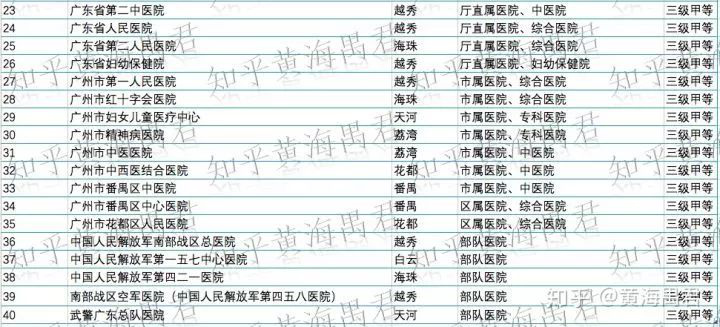 23 广东省第二中医院 越秀 厅直属医院、中医院 三级甲等
24 广东省人民医院 越秀 厅直属医院、综合医院 三级甲等
25 广东省第二人民医院 海珠 厅直属医院、综合医院 三级甲等
26 广东省妇幼保健院 越秀 厅直属医院、妇幼保健院 三级甲等
27 广州市第一人民医院 越秀 市属医院、综合医院 三级甲等
28 广州市红十字会医院 海珠 市属医院、综合医院 三级甲等
29 广州市妇女儿童医疗中心 天河 市属医院、专科医院 三级甲等
30 广州市精神病医院 荔湾 市属医院、专科医院 三级甲等
31 广州市中医医院 荔湾 市属医院、中医院 三级甲等
32 广州市中西医结合医院 花都 市属医院、中医院 三级甲等
33 广州市番禺区中医院 番禺 市属医院、中医院 三级甲等
34 广州市番禺区中心医院 番禺 区属医院、综合医院 三级甲等
35 广州市花都区人民医院 花都 区属医院、综合医院 三级甲等
36 中国人民解放军南部战区总医院 越秀 部队医院 三级甲等
37 中国人民解放军第一五七中心医院 白云 部队医院 三级甲等
38 中国人民解放军第四二一医院 海珠 部队医院 三级甲等
39 南部战区空军医院（中国人民解放军第四五八医院） 越秀 部队医院 三级甲等
40 武警广东总队医院 天河 部队医院 三级甲等
知乎 @黄海禺君
知乎黄海禺君